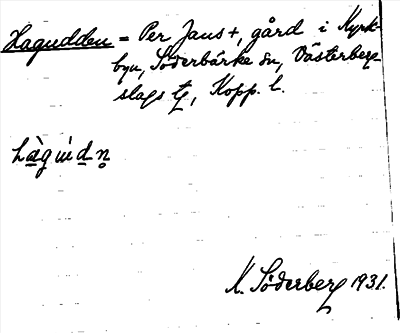 Hagudden = Per Jans +, gård i Kyrk-
byn, Söderbärke sn, Västerberg-
slags tg, Kopp. l.
M. Söderberg 1931.